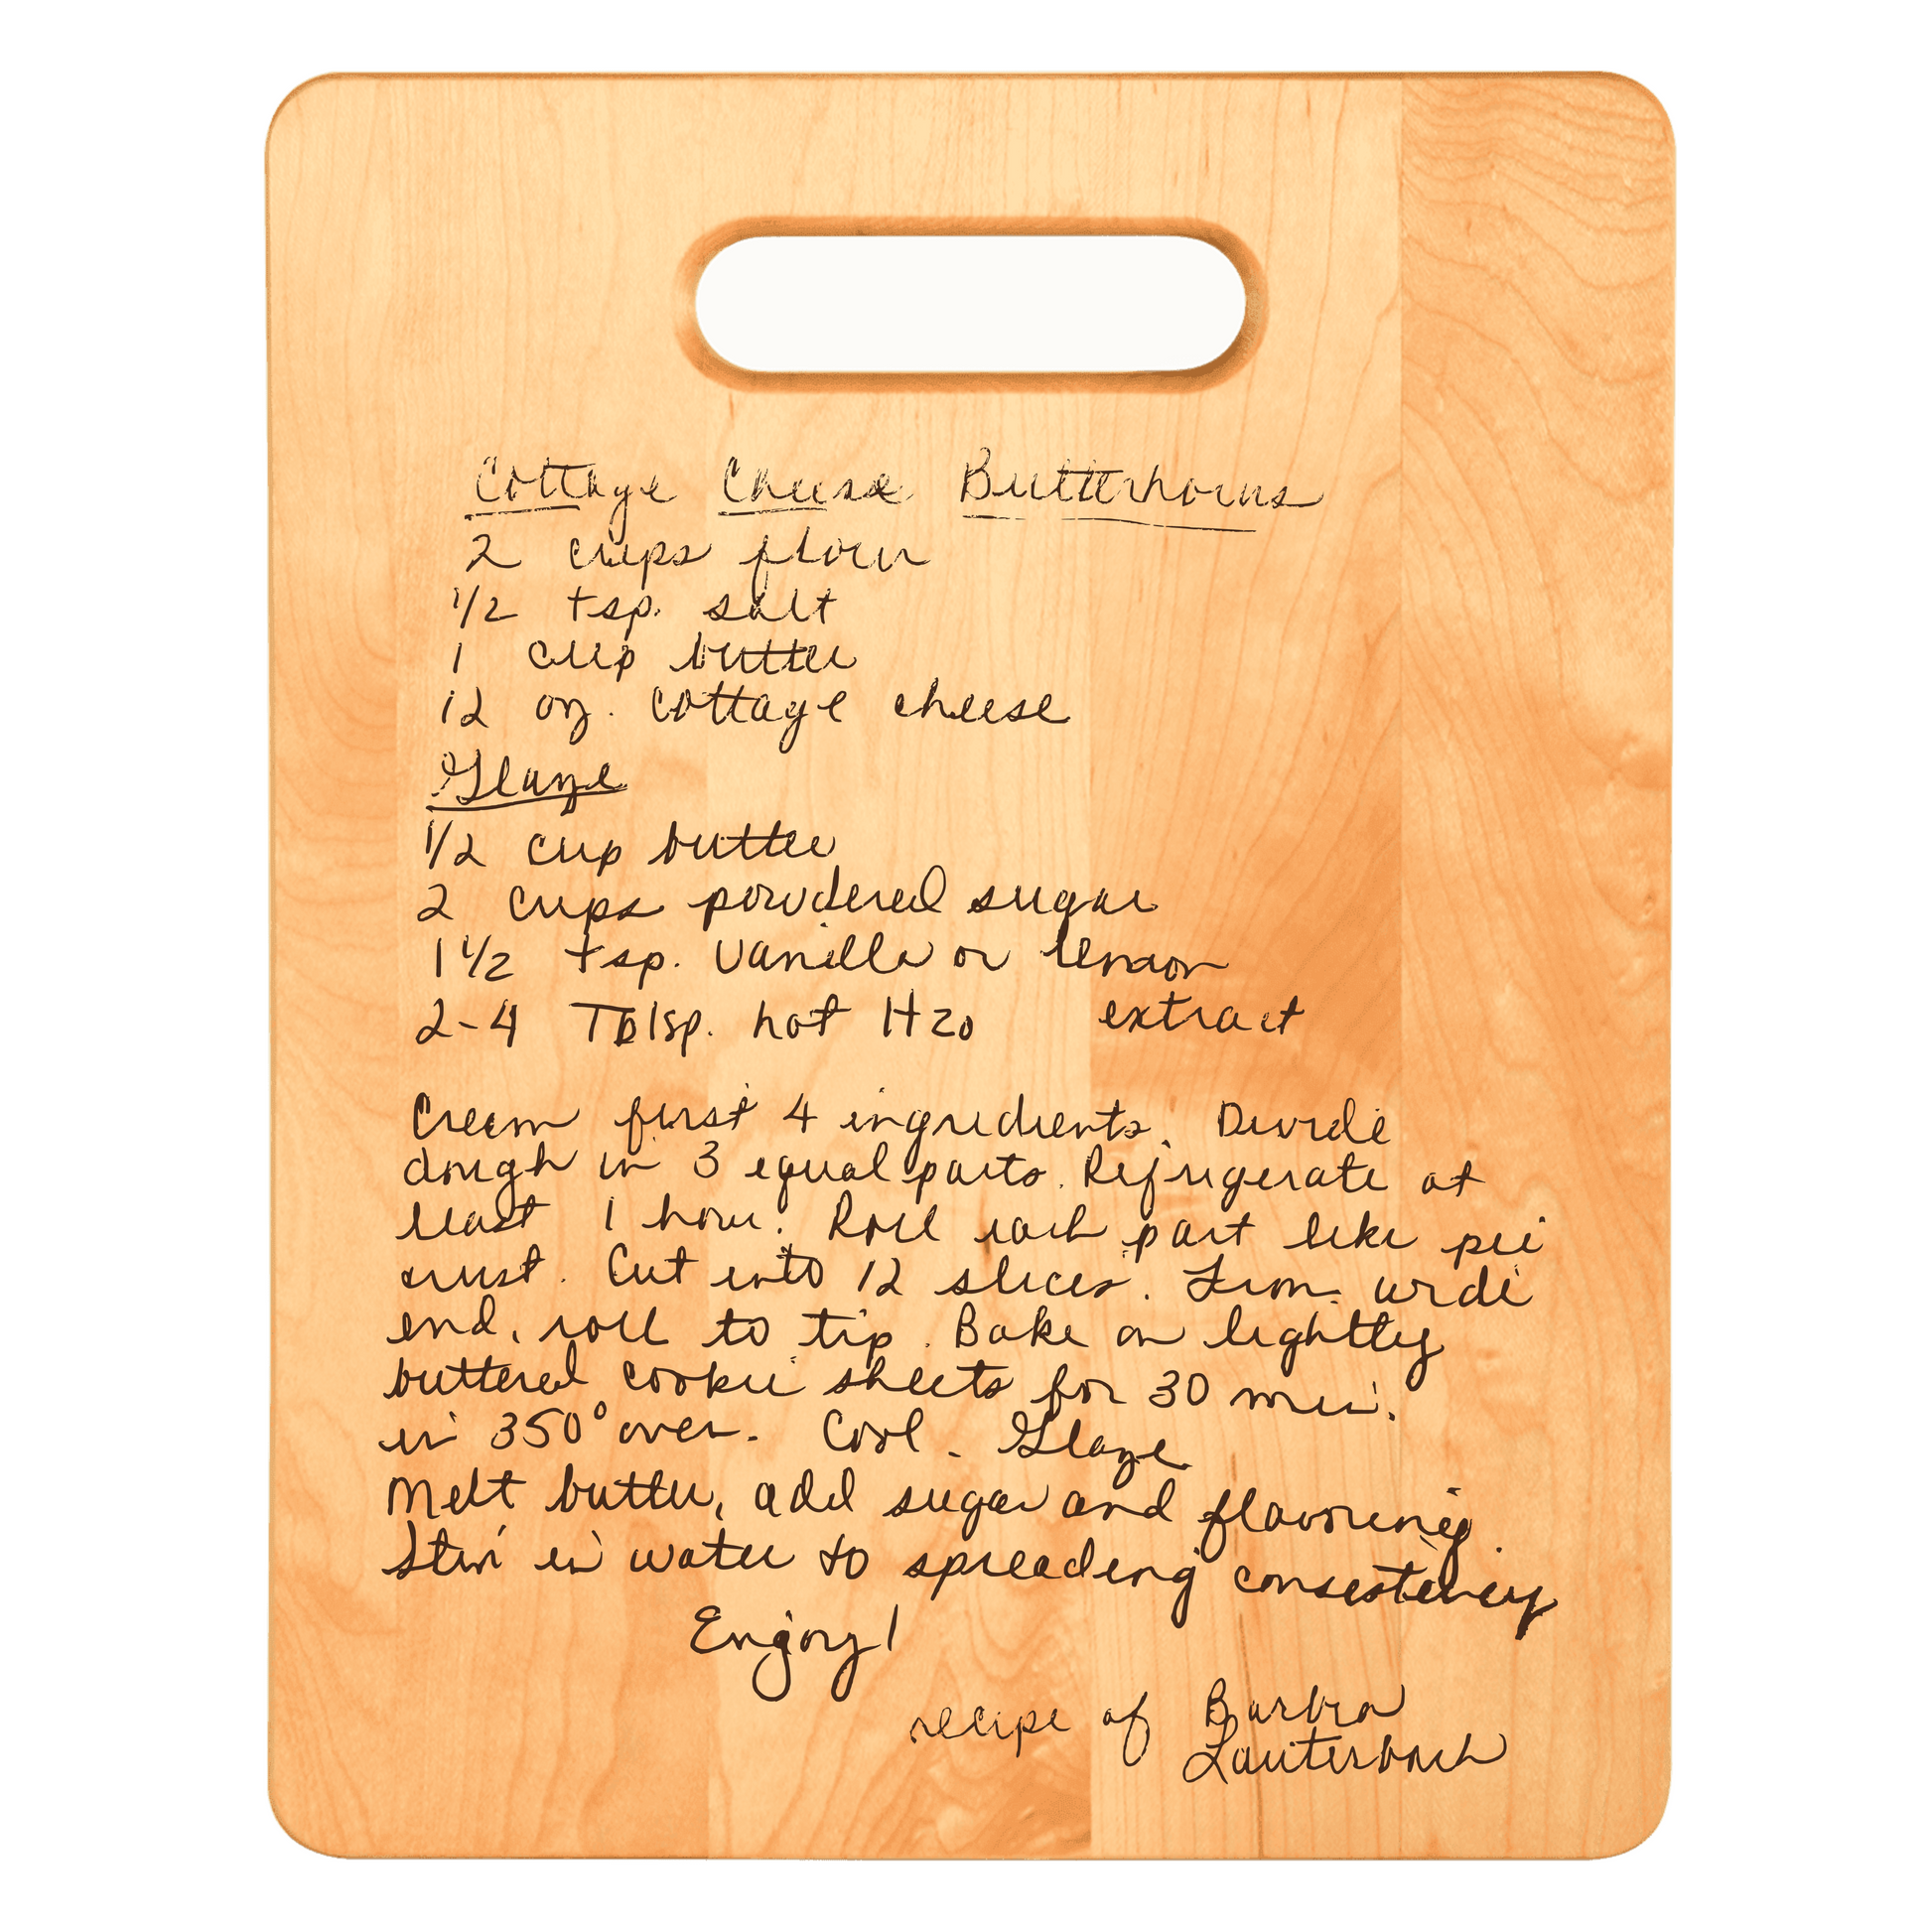 Cottage Cheese Butterhorns
2 cups flour
1/2 tsp. salt
1 cup butter
12 oz. cottage cheese
Glaze
1/2 cup butter
2 cups powdered sugar
1 1/2 tsp. vanilla or lemon
2-4 Tblsp. hot H2O extract
Cream first 4 ingredients. Divide
dough in 3 equal parts. Refrigerate at
least 1 hour. Roll each part like pie
crust. Cut into 12 slices. From wide
end, roll to tip. Bake on lightly
buttered cookie sheets for 30 min.
in 350° oven. Cool. Glaze
Melt butter, add sugar and flavoring
Stir in water to spreading consistency
Enjoy!
recipe of Barbra
Lauterbach